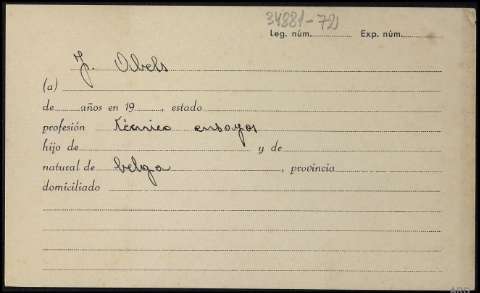 34881-721
Leg. núm. Exp. núm.
J. Abels
(a)
de años en 19 , estado
profesión técnico ensayos
hijo de y de
natural de belga , provincia
domiciliado